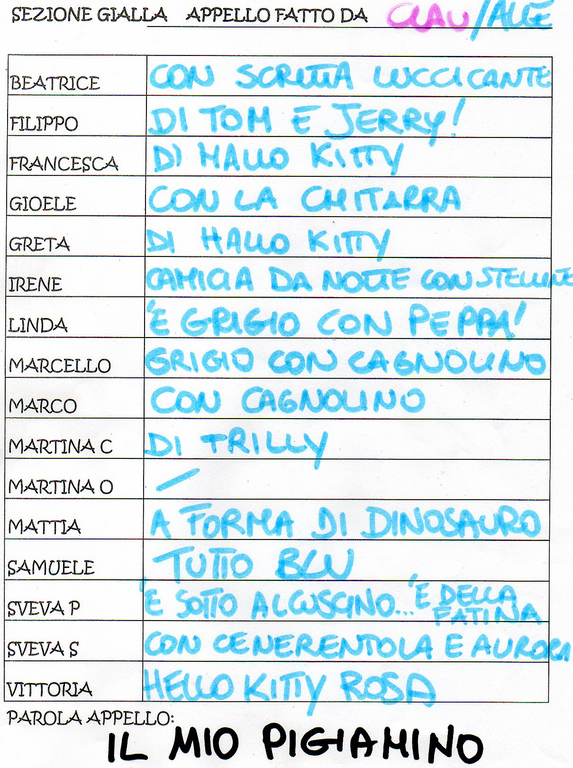 SEZIONE GIALLA APPELLO FATTO DA CLAU/ALLE
BEATRICE CON SCRITTA LUCCICANTE
FILIPPO DI TOM E JERRY!
FRANCESCA DI HALLO KITTY
GIOELE CON LA CHITARRA
GRETA DI HALLO KITTY
IRENE CAMICIA DA NOTTE CON STELLINE
LINDA È GRIGIO CON PEPPA!
MARCELLO GRIGIO CON CAGNOLINO
MARCO CON CAGNOLINO
MARTINA C DI TRILLY
MARTINA O /
MATTIA A FORMA DI DINOSAURO
SAMUELE TUTTO BLU
SVEVA P È SOTTO AL CUSCINO... È DELLA
FATINA
SVEVA S CON CENERENTOLA E AURORA
VITTORIA HELLO KITTY ROSA
PAROLA APPELLO:
IL MIO PIGIAMINO